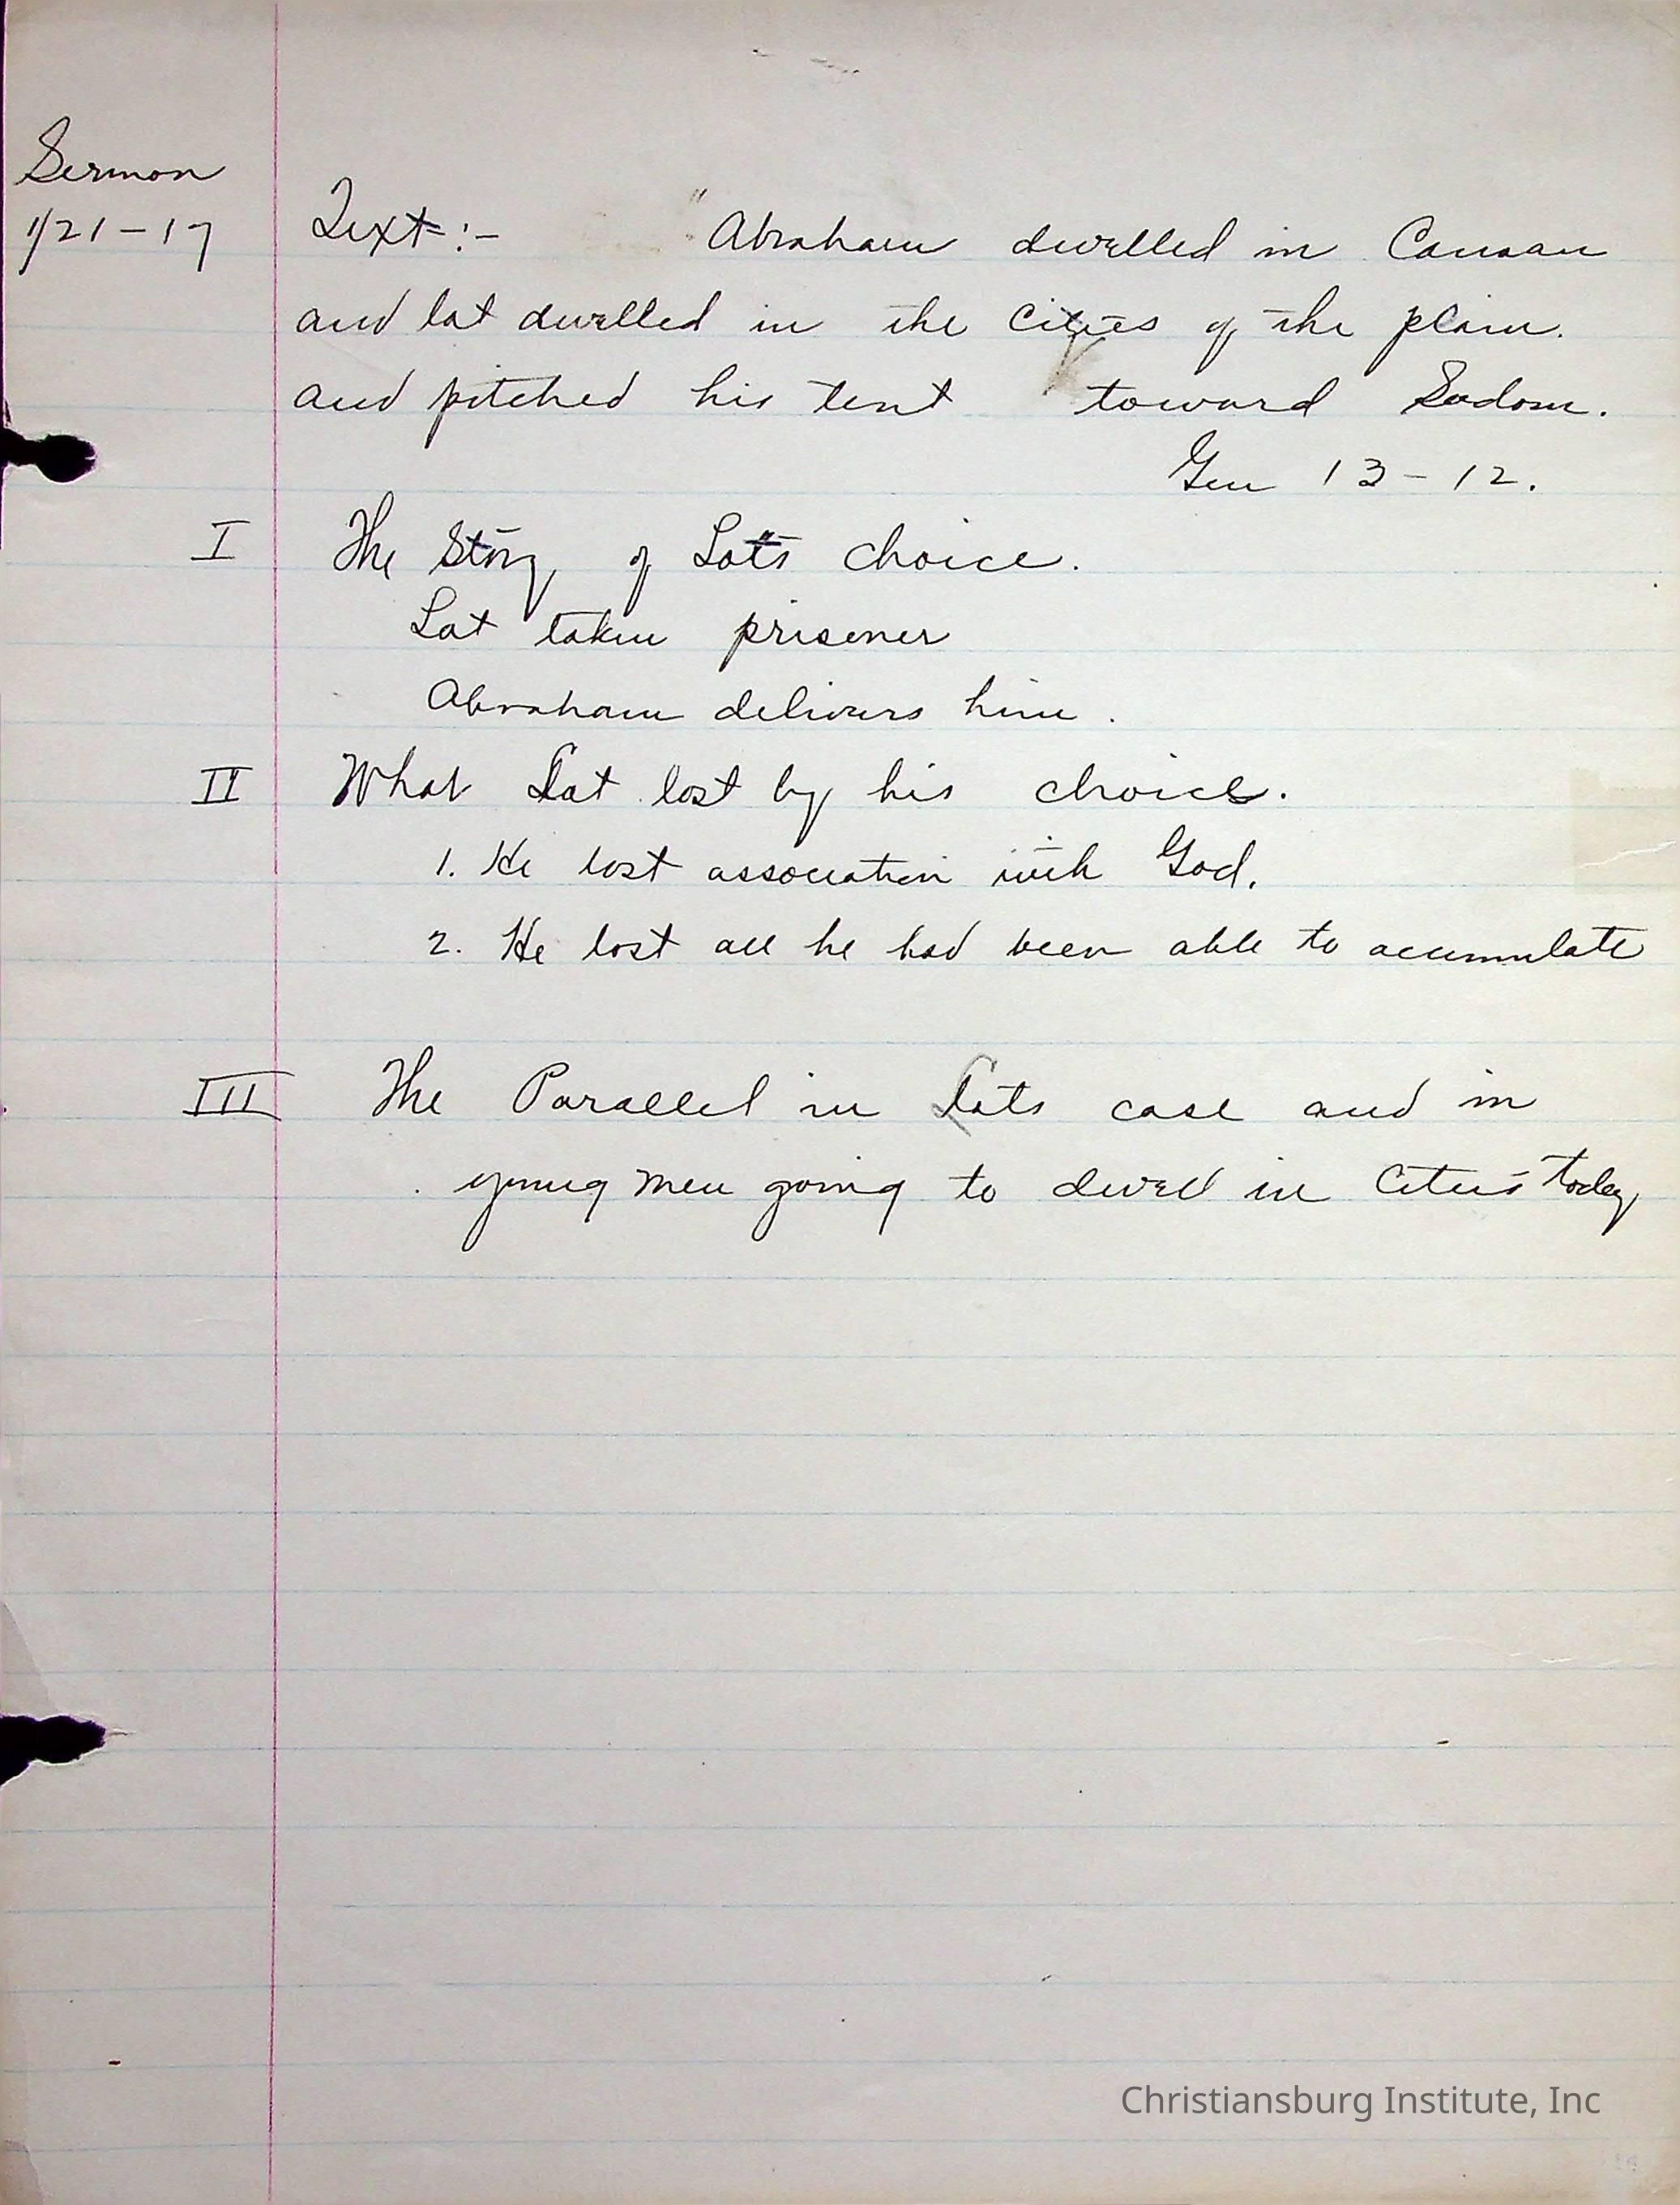 Sermon
1/21-17
Text:- "Abraham dwelled in Canaan
and lot dwelled in the cities of the plain.
and pitched his tent toward Sodom.
Gen 13-12.
I The Story of Lot's choice.
Lot taken prisoner
Abraham delivers him.
II What Lot lost by his choice.
1. He lost association with God.
2. He lost all he had been able to accumulate
III The Parallel in Lots case and in
young men going to dwell in Cities today
Christiansburg Institute, Inc